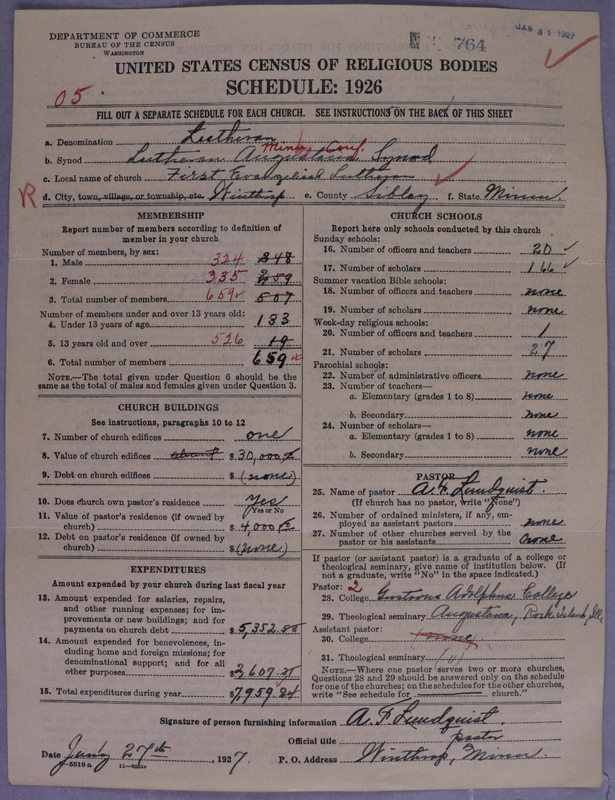 DEPARTMENT OF COMMERCE
BUREAU OF THE CENSUS
WASHINGTON
764
JAN 31 1927
UNITED STATES CENSUS OF RELIGIOUS BODIES
SCHEDULE: 1926
05
FILL OUT A SEPARATE SCHEDULE FOR EACH CHURCH. SEE INSTRUCTIONS ON THE BACK OF THIS SHEET
a. Denomination Lutheran
Minn. Conf.
b. Synod Lutheran Augustana Synod
c. Local name of church First Evangelical Lutheran
R d. City, town, village, or township, etc. Winthrop e. County Sibley f. State Minn.
MEMBERSHIP
Report number of members according to definition of
member in your church
Number of members, by sex:
1. Male 324 248
2. Female 335 259
3. Total number of members 659 507
Number of members under and over 13 years old:
4. Under 13 years of age 133
5. 13 years old and over 526 19
6. Total number of members 659
NOTE.—The total given under Question 6 should be the
same as the total of males and females given under Question 3.
CHURCH BUILDINGS
See instructions, paragraphs 10 to 12
7. Number of church edifices one
8. Value of church edifices about $30,000
9. Debt on church edifices $(none)
10. Does church own pastor's residence Yes
Yes or No
11. Value of pastor's residence (if owned by
church) $4,000
12. Debt on pastor's residence (if owned by
church) $(none)
EXPENDITURES
Amount expended by your church during last fiscal year
13. Amount expended for salaries, repairs,
and other running expenses; for im-
provements or new buildings; and for
payments on church debt $5,352.
14. Amount expended for benevolences, in-
cluding home and foreign missions; for
denominational support; and for all
other purposes $2,607.
15. Total expenditures during year $7,959.84
CHURCH SCHOOLS
Report here only schools conducted by this church
Sunday schools:
16. Number of officers and teachers 20
17. Number of scholars 166
Summer vacation Bible schools:
18. Number of officers and teachers none
19. Number of scholars none
Week-day religious schools:
20. Number of officers and teachers 1
21. Number of scholars 27
Parochial schools:
22. Number of administrative officers none
23. Number of teachers—
a. Elementary (grades 1 to 8) none
b. Secondary none
24. Number of scholars—
a. Elementary (grades 1 to 8) none
b. Secondary none
PASTOR
25. Name of pastor A. F. Lundquist.
(If church has no pastor, write "None")
26. Number of ordained ministers, if any, em-
ployed as assistant pastors none
27. Number of other churches served by the
pastor or his assistants none
If pastor (or assistant pastor) is a graduate of a college or
theological seminary, give name of institution below. (If
not a graduate, write "No" in the space indicated.)
Pastor: 2
28. College Gustavus Adolphus College
29. Theological seminary Augustana, Rock Island, Ill.
Assistant pastor:
30. College (none)
31. Theological seminary (")
NOTE.—Where one pastor serves two or more churches,
Questions 28 and 29 should be answered only on the schedule
for one of the churches; on the schedules for the other churches,
write "See schedule for church."
Signature of person furnishing information A. F. Lundquist.
Official title pastor
Date Jan'y 27th, 1927. P. O. Address Winthrop, Minn.